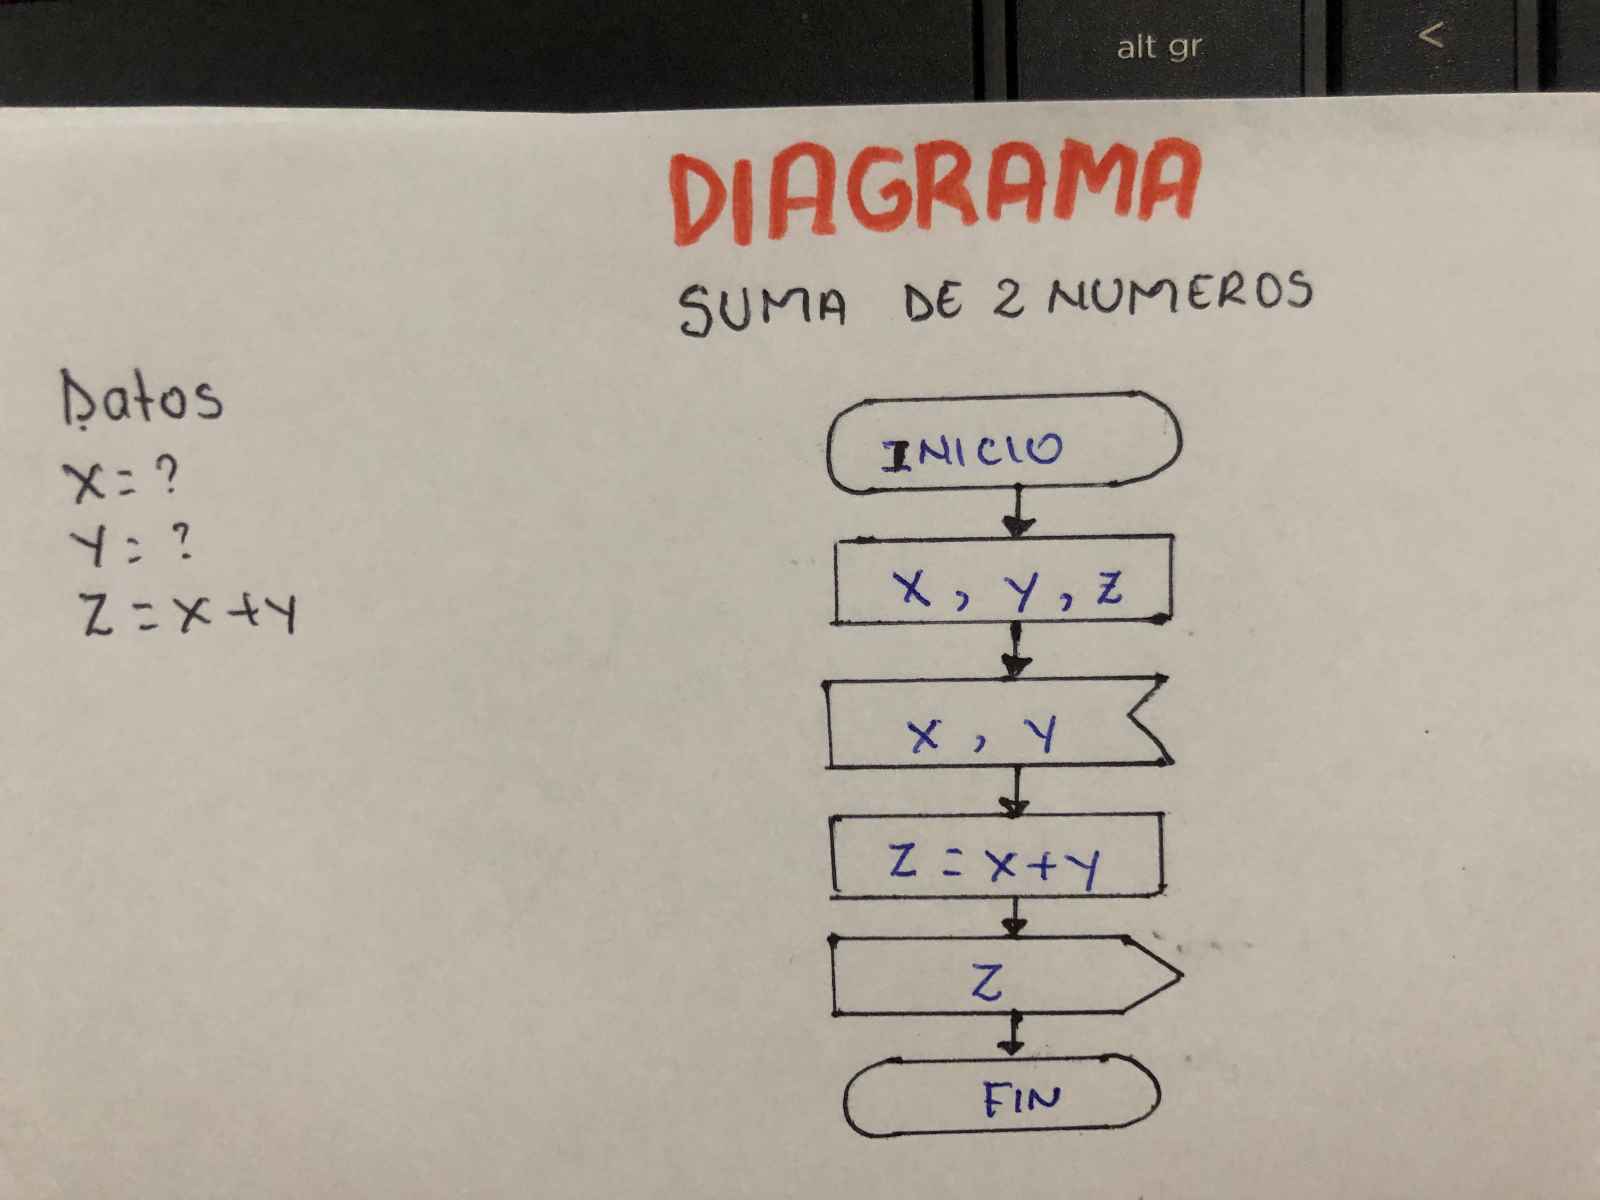 alt gr <
DIAGRAMA
SUMA DE 2 NUMEROS
Datos
X = ?
Y = ?
Z = X + Y
INICIO
X , Y , Z
X , Y
Z = X + Y
Z
FIN